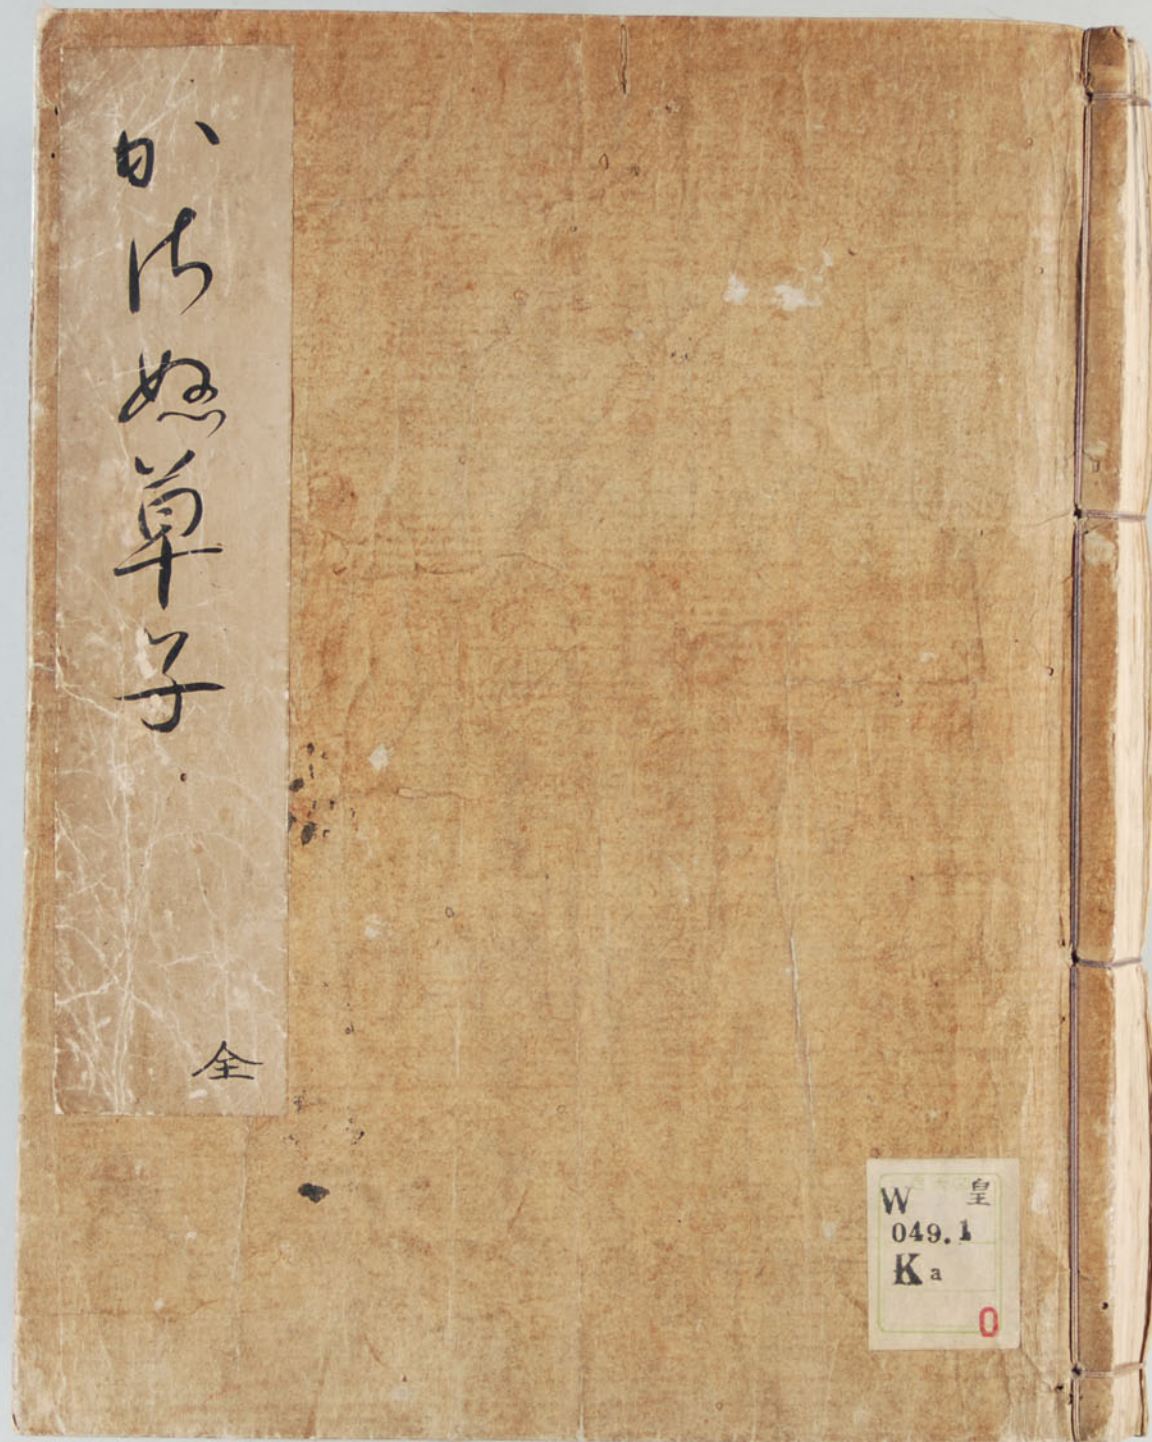 かさぬ草子
全
W 皇
049.1
Ka
0